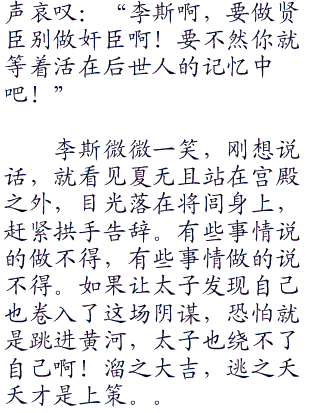 声哀叹：“李斯啊，要做贤
臣别做奸臣啊！要不然你就
等着活在后世人的记忆中
吧！”
李斯微微一笑，刚想说
话，就看见夏无且站在宫殿
之外，目光落在将闾身上，
赶紧拱手告辞。有些事情说
的做不得，有些事情做的说
不得。如果让太子发现自己
也卷入了这场阴谋，恐怕就
是跳进黄河，太子也绕不了
自己啊！溜之大吉，逃之夭
夭才是上策。。